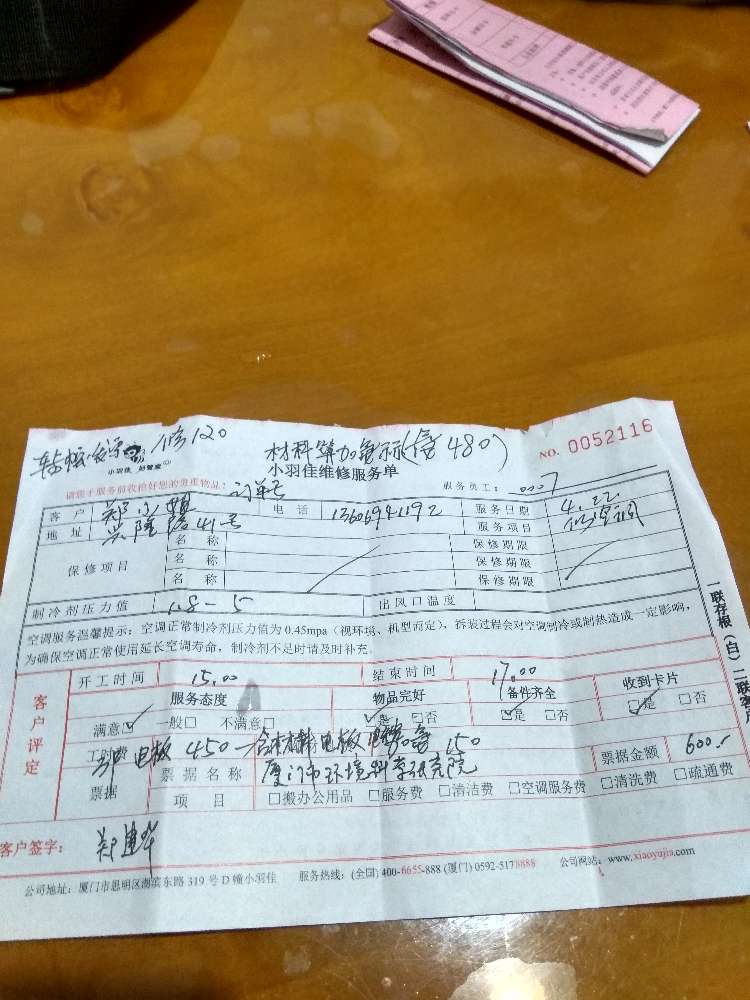 修120
材料算加重
480)
NO. 0052116
小羽佳 好管家
小羽佳维修服务单
请您于服务前收拾好您的贵重物品:
服务员工: 0007
客户 郑小 电话 13606941192 服务日期 4.22
地址 兴隆路41号 服务项目 修空调
保修项目 名称 保修期限
名称 保修期限
名称 保修期限
制冷剂压力值 出风口温度
空调服务温馨提示:空调正常制冷剂压力值为 0.45mpa(视环境、机型而定),拆装过程会对空调制冷或制热造成一定影响,
为确保空调正常使用延长空调寿命,制冷剂不足时请及时补充。
开工时间 15.00 结束时间 17.00
客户评定
服务态度 物品完好 备件齐全 收到卡片
满意☑ 一般□ 不满意□ ☑是 □否 ☑是 □否 ☑是 □否
工时费 电板 450 电板 150
票据 票据名称 厦门市环境科学研究院 票据金额 600.-
项目 □搬办公用品 □服务费 □清洁费 □空调服务费 □清洗费 □疏通费
客户签字: 郑建华
公司地址:厦门市思明区湖滨东路 319 号 D 幢小羽佳 服务热线:(全国) 400-6655-888 (厦门) 0592-5178888 公司网站:www.xiaoyujia.com
一联存根(白)二联客